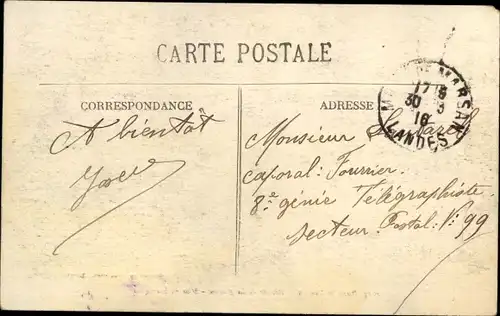 CARTE POSTALE
CORRESPONDANCE
ADRESSE
MONT-DE-MARSAN
17 15
30 3
16
LANDES
A bientôt
Monsieur
caporal: Fourrier
8.e génie Télégraphiste
Secteur: Postal: N: 99